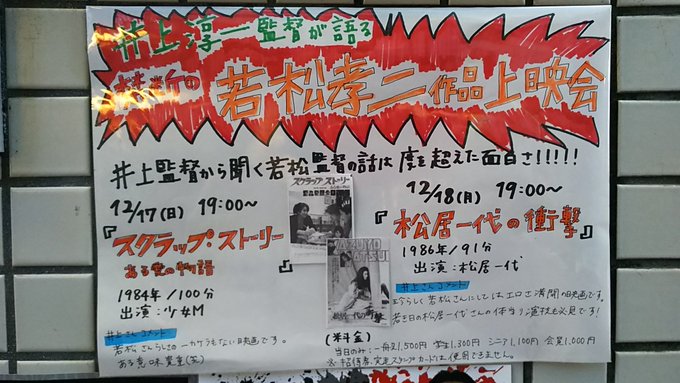 井上淳一監督が語る
禁断の
若松孝二作品上映会
井上監督から聞く若松監督の話は度を超えた面白さ!!!!!
12/17(日) 19:00~
『スクラップ・ストーリー
ある愛の物語』
1984年/100分
出演:少女M
井上さんコメント
若松さんらしさの一カケラもない映画です。
ある意味貴重(笑)
スクラップストーリー
KAZUYO
MATSUI
松居一代の衝撃
12/18(月) 19:00~
『松居一代の衝撃』
1986年/91分
出演:松居一代
井上さんコメント
珍らしく若松さんにしてはエロさ満開の映画です。
若き日の松居一代さんの体当り演技も必見です!
(料金)
当日のみ:一般1,500円 学生1,300円 シニア1,100円 会員1,000円
※招待券、完走スタンプカードは使用できません。